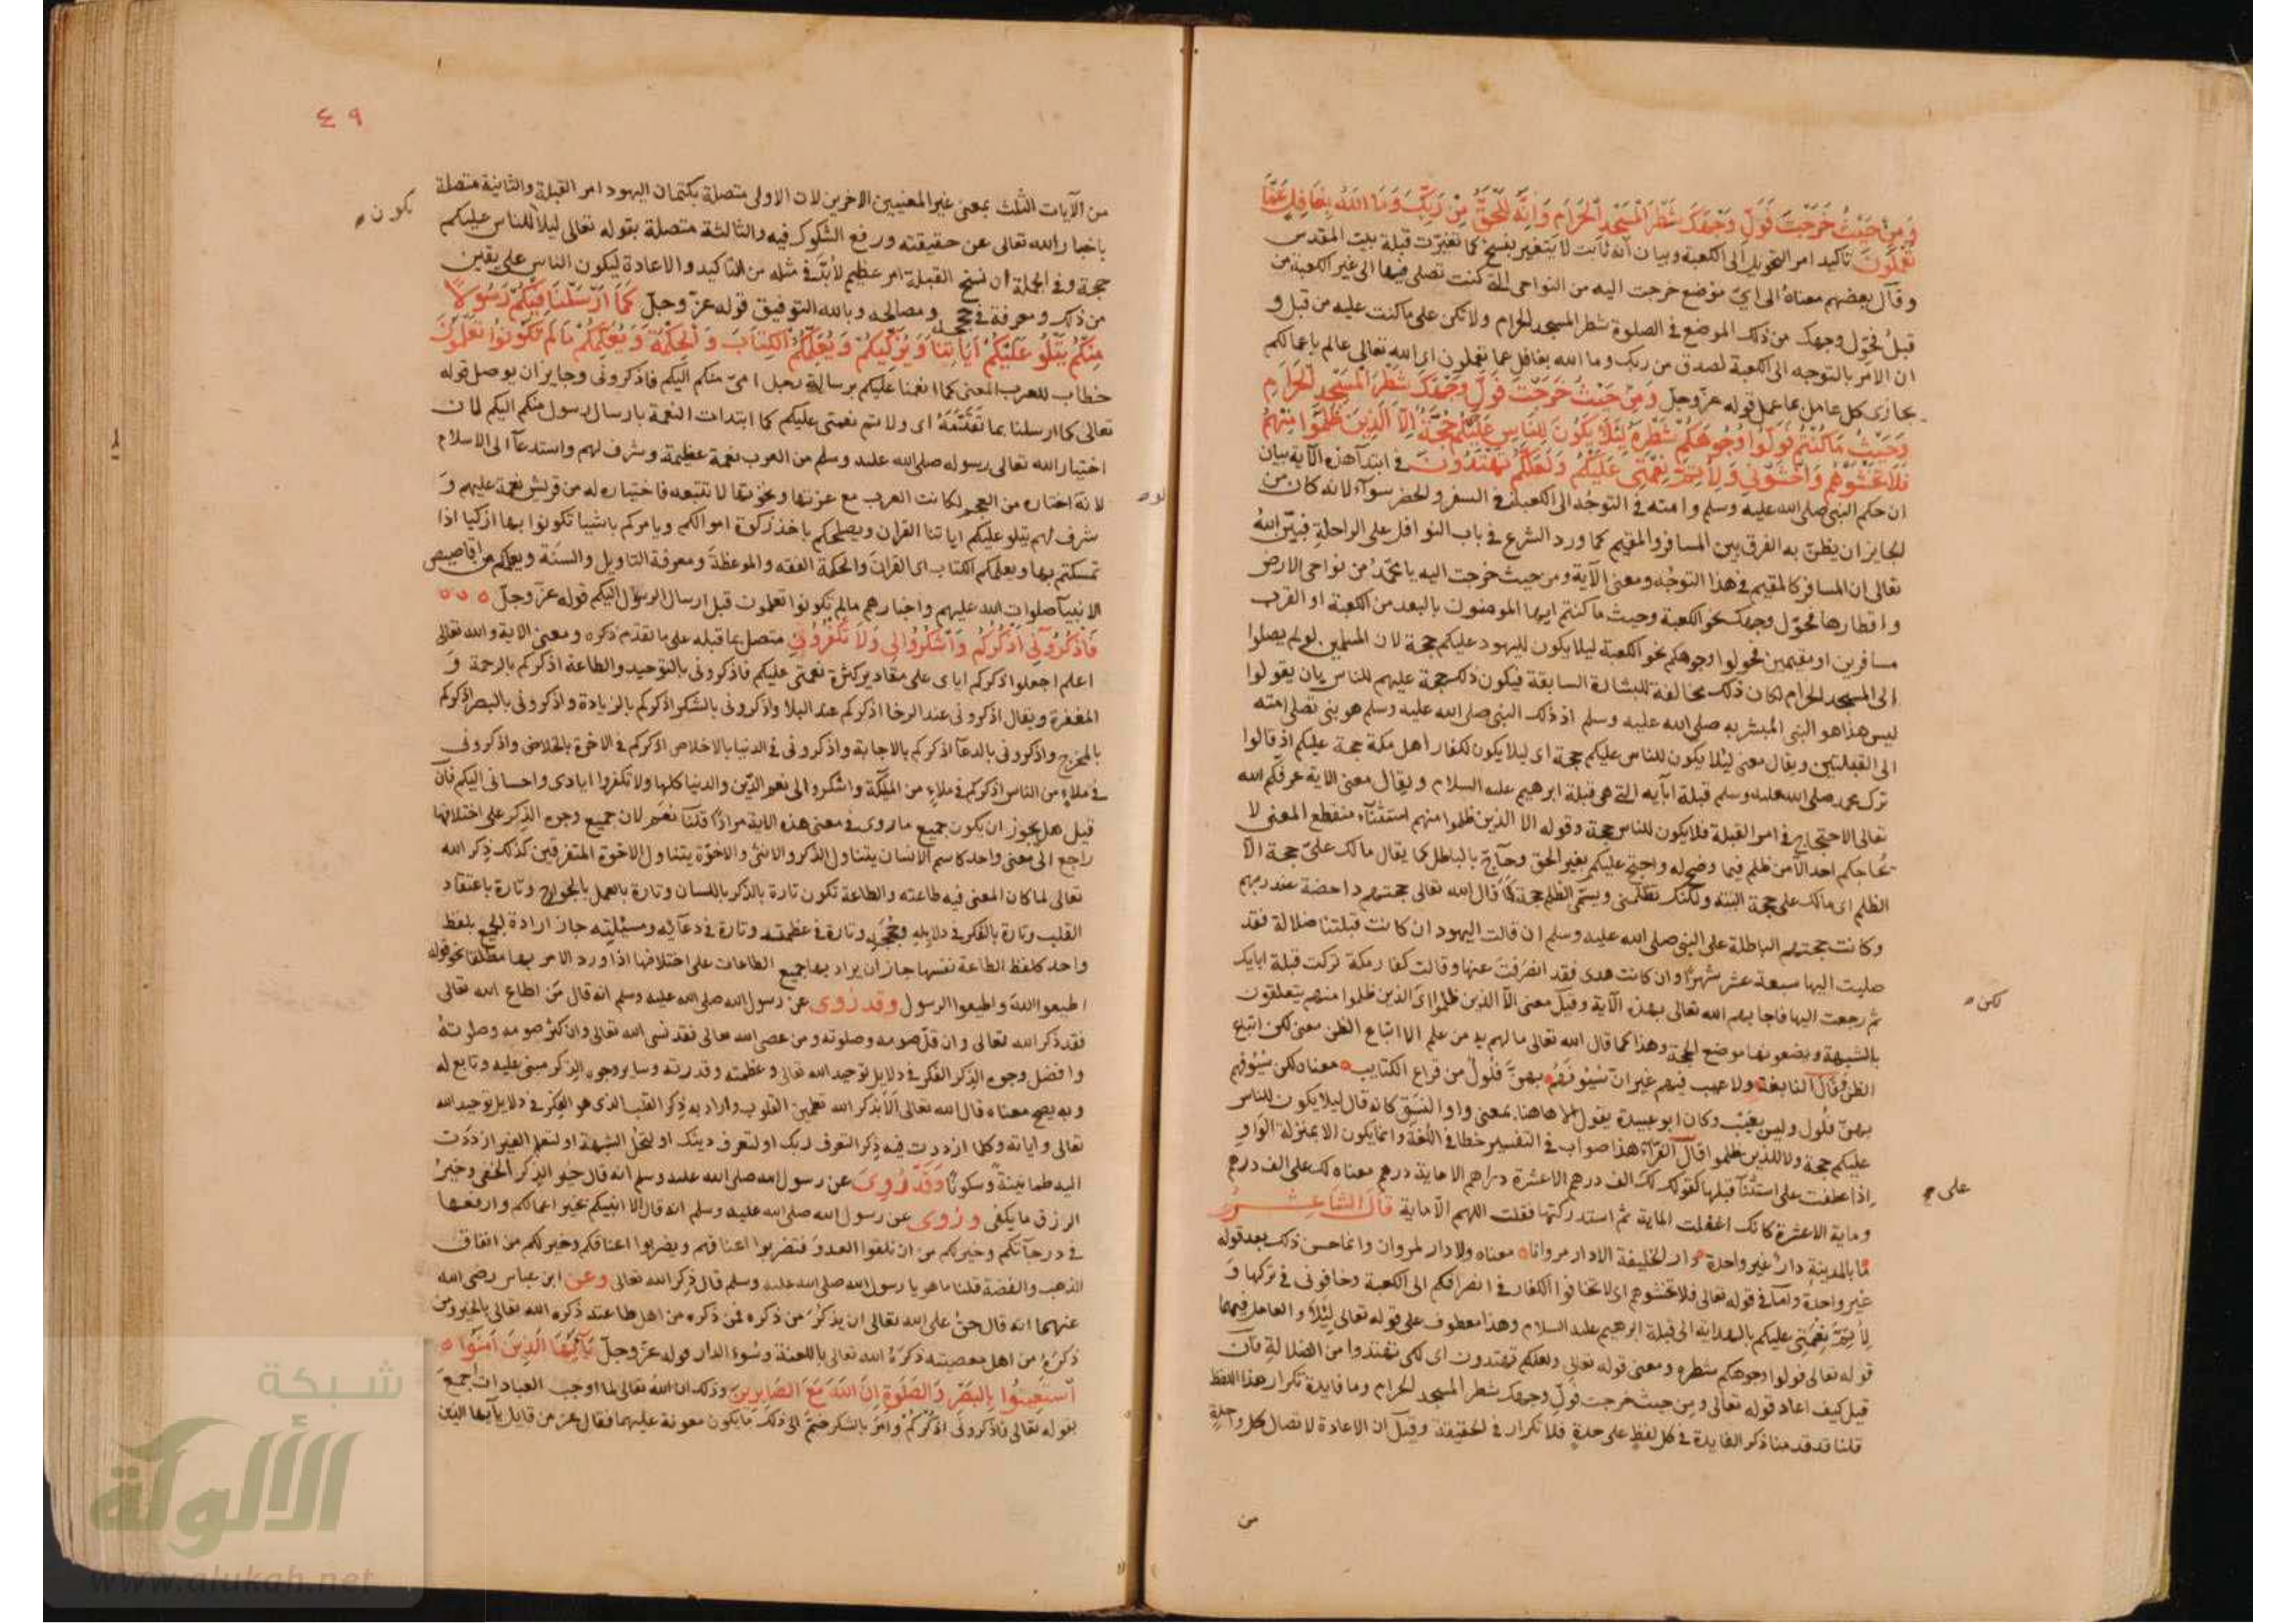 وَمِنْ حَيْثُ خَرَجْتَ فَوَلِّ وَجْهَكَ شَطْرَ الْمَسْجِدِ الْحَرَامِ وَإِنَّهُ لَلْحَقُّ مِنْ رَبِّكَ وَمَا اللهُ بِغَافِلٍ عَمَّا
تَعْمَلُونَ تاكيد امر التحويل الى الكعبة وبيان انه ثابت لا يتغير بنسخ كما تغيرت قبلة بيت المقدس
وقال بعضهم معناه الى اي موضع خرجت اليه من النواحي التي كنت تصلي فيها الى غير الكعبة من
قبل فحول وجهك من ذلك الموضع في الصلوة شطر المسجد الحرام ولا تكن على ما كنت عليه من قبل و
ان الامر بالتوجه الى الكعبة لصدق من ربك وما الله بغافل عما تعملون اي الله تعالى عالم باعمالكم
يجازي كل عامل بما عمل قوله عز وجل وَمِنْ حَيْثُ خَرَجْتَ فَوَلِّ وَجْهَكَ شَطْرَ الْمَسْجِدِ الْحَرَامِ
وَحَيْثُ مَا كُنْتُمْ فَوَلُّوا وُجُوهَكُمْ شَطْرَهُ لِئَلَّا يَكُونَ لِلنَّاسِ عَلَيْكُمْ حُجَّةٌ اِلَّا الَّذِينَ ظَلَمُوا مِنْهُمْ
فَلَا تَخْشَوْهُمْ وَاخْشَوْنِي وَلِأُتِمَّ نِعْمَتِي عَلَيْكُمْ وَلَعَلَّكُمْ تَهْتَدُونَ في ابتدآ هذه الآية بيان
ان حكم النبي صلى الله عليه وسلم وامته في التوجه الى الكعبة في السفر والحضر سوآء لانه كان من
الجايز ان يظن به الفرق بين المسافر والمقيم كما ورد الشرع في باب النوافل على الراحلة فبين الله
تعالى ان المسافر كالمقيم في هذا التوجه ومعنى الآية ومن حيث خرجت اليه يا محمد من نواحي الارض
واقطارها فحول وجهك نحو الكعبة وحيث ما كنتم ايها المومنون بالبعد من الكعبة او القرب
مسافرين او مقيمين فحولوا وجوهكم نحو الكعبة ليلا يكون لليهود عليكم حجة لان المسلمين لو لم يصلوا
الى المسجد الحرام لكان ذلك مخالفة للبشارة السابقة فيكون ذلك حجة عليهم للناس بان يقولوا
ليس هذا هو النبي المبشر به صلى الله عليه وسلم اذ ذلك النبي صلى الله عليه وسلم هو نبي تصلي امته
الى القبلتين ويقال معنى ليلا يكون للناس عليكم حجة اي ليلا يكون لكفار اهل مكة حجة عليكم اذ قالوا
ترك محمد صلى الله عليه وسلم قبلة ابآيه التي هي قبلة ابرهيم عليه السلام ويقال معنى الآية عرفكم الله
تعالى الاحتجاج في امر القبلة فلا يكون للناس حجة وقوله الا الذين ظلموا منهم استثنآء منقطع المعنى لا
يحاجكم احد الا من ظلم فيما وضح له واحتج عليكم بغير الحق وحاج بالباطل كما يقال مالك علي حجة الا
الظلم اي مالك علي حجة البتة ولكنك تظلمني ويسمى الظلم حجة كما قال الله تعالى حجتهم داحضة عند ربهم
وكانت حجتهم الباطلة على النبي صلى الله عليه وسلم ان قالت اليهود ان كانت قبلتنا ضلالة فقد
صليت اليها سبعة عشر شهرا وان كانت هدى فقد انصرفت عنها وقالت كفار مكة تركت قبلة ابايك
ثم رجعت اليها فاجابهم الله تعالى بهذه الآية وقيل معنى الا الذين ظلموا اي الذين ظلموا منهم يتعلقون
بالشبهة ويضعونها موضع الحجة وهذا كما قال الله تعالى ما لهم به من علم الا اتباع الظن معنى لكن اتباع
الظن وقال النابغة ولا عيب فيهم غير ان سيوفهم بهن فلول من قراع الكتايب معناه لكن سيوفهم
بهن فلول وليس بعيب وكان ابو عبيدة يقول الا هاهنا بمعنى واو النسق كانه قال ليلا يكون للناس
عليكم حجة ولا للذين ظلموا قال الفرآء هذا صواب في التفسير خطا في اللغة وانما يكون الا بمنزلة الواو
اذا عطفت على استثنآء قبلها كقولك لك الف درهم الا عشرة دراهم الا ماية درهم معناه لك علي الف درهم
وماية الا عشرة كانك اغفلت الماية ثم استدركتها فقلت اللهم الا ماية قال الشاعر
ما بالمدينة دار غير واحدة دار الخليفة الا دار مروانا معناه ولا دار لمروان وانما حسن ذلك بعد قوله
غير واحدة واما في قوله تعالى فلا تخشوهم اي لا تخافوا الكفار في انصرافكم الى الكعبة وخافوني في تركها و
لأتم نعمتي عليكم بالهداية الى قبلة ابرهيم عليه السلام وهذا معطوف على قوله تعالى ليلا والعامل فيهما
قوله تعالى فولوا وجوهكم شطره ومعنى قوله تعالى ولعلكم تهتدون اي لكي تهتدوا من الضلالة فان
قيل كيف اعاد قوله تعالى ومن حيث خرجت فول وجهك شطر المسجد الحرام وما فايدة تكرار هذا اللفظ
قلنا قد قدمنا ذكر الفايدة في كل لفظ على حدة فلا تكرار في الحقيقة وقيل ان الاعادة لاتصال كل واحدة
من
لكن
على
٤٩
من الآيات الثلث بمعنى غير المعنيين الاخرين لان الاولى متصلة بكتمان اليهود امر القبلة والثانية متصلة
باخبار الله تعالى عن حقيقته ورفع الشكوك فيه والثالثة متصلة بقوله تعالى ليلا للناس عليكم
يكون
حجة وفي الجملة ان نسخ القبلة امر عظيم لا بد في مثله من التاكيد والاعادة ليكون الناس على يقين
من ذلك ومعرفة في حججه ومصالحه وبالله التوفيق قوله عز وجل كَمَا أَرْسَلْنَا فِيكُمْ رَسُولًا
مِنْكُمْ يَتْلُو عَلَيْكُمْ آيَاتِنَا وَيُزَكِّيكُمْ وَيُعَلِّمُكُمُ الْكِتَابَ وَالْحِكْمَةَ وَيُعَلِّمُكُمْ مَا لَمْ تَكُونُوا تَعْلَمُونَ
خطاب للعرب المعنى كما انعمنا عليكم برسالة رجل امي منكم اليكم فاذكروني وجايز ان يوصل قوله
تعالى كما ارسلنا بما تقدمه اي ولاتم نعمتي عليكم كما ابتدات النعمة بارسال رسول منكم اليكم لان
اختيار الله تعالى رسوله صلى الله عليه وسلم من العرب نعمة عظيمة وشرف لهم واستدعآ الى الاسلام
لانه اختاره من العجم لكانت العرب مع عزتها ونخوتها لا تتبعه فاختياره له من قريش نعمة عليهم و
لو
شرف لهم يتلو عليكم اياتنا القران ويصلحكم باخذ زكوة اموالكم ويامركم باشيا تكونوا بها ازكيا اذا
تمسكتم بها ويعلمكم الكتاب اي القران والحكمة الفقه والموعظة ومعرفة التاويل والسنة ويعلمكم من اقاصيص
الانبيآ صلوات الله عليهم واخبارهم ما لم تكونوا تعلمون قبل ارسال الرسول اليكم قوله عز وجل
فَاذْكُرُونِي أَذْكُرْكُمْ وَاشْكُرُوا لِي وَلَا تَكْفُرُونِ متصل بما قبله على ما تقدم ذكره ومعنى الآية والله تعالى
اعلم اجعلوا ذكركم اياي على مقادير كثرة نعمتي عليكم فاذكروني بالتوحيد والطاعة اذكركم بالرحمة و
المغفرة ويقال اذكروني عند الرخا اذكركم عند البلا واذكروني بالشكر اذكركم بالزيادة واذكروني بالصبر اذكركم
بالمخرج واذكروني بالدعآ اذكركم بالاجابة واذكروني في الدنيا بالاخلاص اذكركم في الاخرة بالخلاص واذكروني
في ملاء من الناس اذكركم في ملاء من الملئكة واشكروا لي نعم الدين والدنيا كلها ولا تكفروا ايادي واحساني اليكم فان
قيل هل يجوز ان يكون جميع ما روي في معنى هذه الاية مرادا قلنا نعم لان جميع وجوه الذكر على اختلافها
راجع الى معنى واحد كاسم الانسان يتناول الذكر والانثى والاخوة يتناول الاخوة المتفرقين كذلك ذكر الله
تعالى لما كان المعنى فيه طاعته والطاعة تكون تارة بالذكر باللسان وتارة بالعمل بالجوارح وتارة باعتقاد
القلب وتارة بالفكر في دلايله وحججه وتارة في عظمته وتارة في دعآئه ومسئلته جاز ارادة الجميع بلفظ
واحد كلفظ الطاعة نفسها جاز ان يراد بها جميع الطاعات على اختلافها اذا ورد الامر بها مطلقا نحو قوله
اطيعوا الله واطيعوا الرسول وقد روي عن رسول الله صلى الله عليه وسلم انه قال من اطاع الله تعالى
فقد ذكر الله تعالى وان قل صومه وصلوته ومن عصى الله تعالى فقد نسى الله تعالى وان كثر صومه وصلوته
وافضل وجوه الذكر الفكر في دلايل توحيد الله تعالى وعظمته وقدرته وساير وجوه الذكر مبني عليه وتابع له
وبه يصح معناه قال الله تعالى الا بذكر الله تطمين القلوب واراد به ذكر القلب الذي هو الفكر في دلايل توحيد الله
تعالى واياته وكلما ازددت فيه ذكر التعرف ربك او لتعرف دينك او لتحل الشبهة او لتعلم الغير ازددت
اليه طمانينة وسكونا وَقَدْ رُوِيَ عن رسول الله صلى الله عليه وسلم انه قال خير الذكر الخفي وخير
الرزق ما يكفي وروي عن رسول الله صلى الله عليه وسلم انه قال الا انبيكم بخير اعمالكم وارفعها
في درجآتكم وخير لكم من ان تلقوا العدو فتضربوا اعناقهم ويضربوا اعناقكم وخير لكم من انفاق
الذهب والفضة قلنا ما هو يا رسول الله صلى الله عليه وسلم قال ذكر الله تعالى وعن ابن عباس رضي الله
عنهما انه قال حق على الله تعالى ان يذكر من ذكره فمن ذكره من اهل طاعته ذكره الله تعالى بالخير ومن
ذكره من اهل معصيته ذكره الله تعالى باللعنة وسوء الدار قوله عز وجل يَا أَيُّهَا الَّذِينَ آمَنُوا
اسْتَعِينُوا بِالصَّبْرِ وَالصَّلَوةِ إِنَّ اللهَ مَعَ الصَّابِرِينَ وذلك ان الله تعالى لما اوجب العبادات اجمع
بقوله تعالى فاذكروني اذكركم وامر بالشكر ضم الى ذلك ما يكون معونة عليهما فقال عز من قايل يآ ايها الذين
شبكة
الألوكة
www.alukah.net